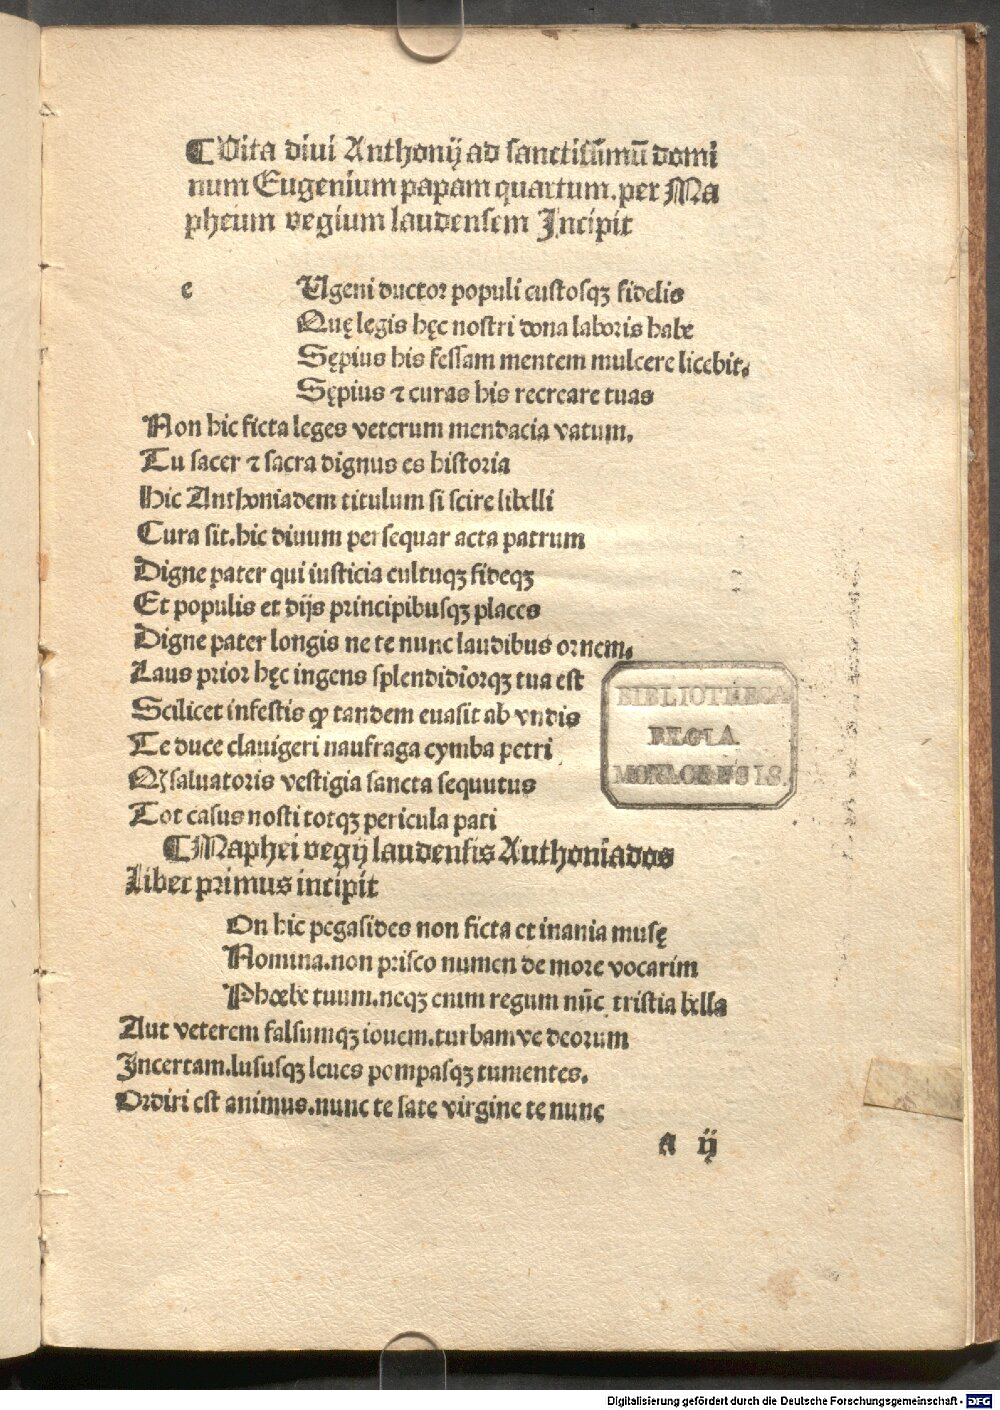 ⸿Vita diui Anthonij ad sanctissimū domi
num Eugenium papam quartum.per Ma
pheum vegium laudensem Incipit
e Ugeni ductor populi custosqꝫ fidelis
Quę legis hęc nostri dona laboris habe
Sępius his fessam mentem mulcere licebit.
Sępius ⁊ curas his recreare tuas
Non hic ficta leges veterum mendacia vatum.
Tu sacer ⁊ sacra dignus es historia
Hic Anthoniadem titulum si scire libelli
Cura sit.hic diuum persequar acta patrum
Digne pater qui iusticia cultuqꝫ fideqꝫ
Et populis et dijs principibusqꝫ places
Digne pater longis ne te nunc laudibus ornem.
Laus prior hęc ingens splendidiorqꝫ tua est
Scilicet infestis ꝙ tandem euasit ab vndis
Te duce clauigeri naufraga cymba petri
Qꝫ saluatoris vestigia sancta sequutus
Tot casus nosti totqꝫ pericula pati
⸿Maphei vegij laudensis Anthoniados
Liber primus incipit
On hic pegasides non ficta et inania musę
Nomina.non prisco numen de more vocarim
Phœbe tuum.neqꝫ enim regum nūc tristia bella
Aut veterem falsumqꝫ iouem.turbamve deorum
Incertam.lususqꝫ leues pompasqꝫ tumentes.
Ordiri est animus.nunc te sate virgine te nunc
a ij
BIBLIOTHECA
REGIA
MONACENSIS.
Digitalisierung gefördert durch die Deutsche Forschungsgemeinschaft - DFG